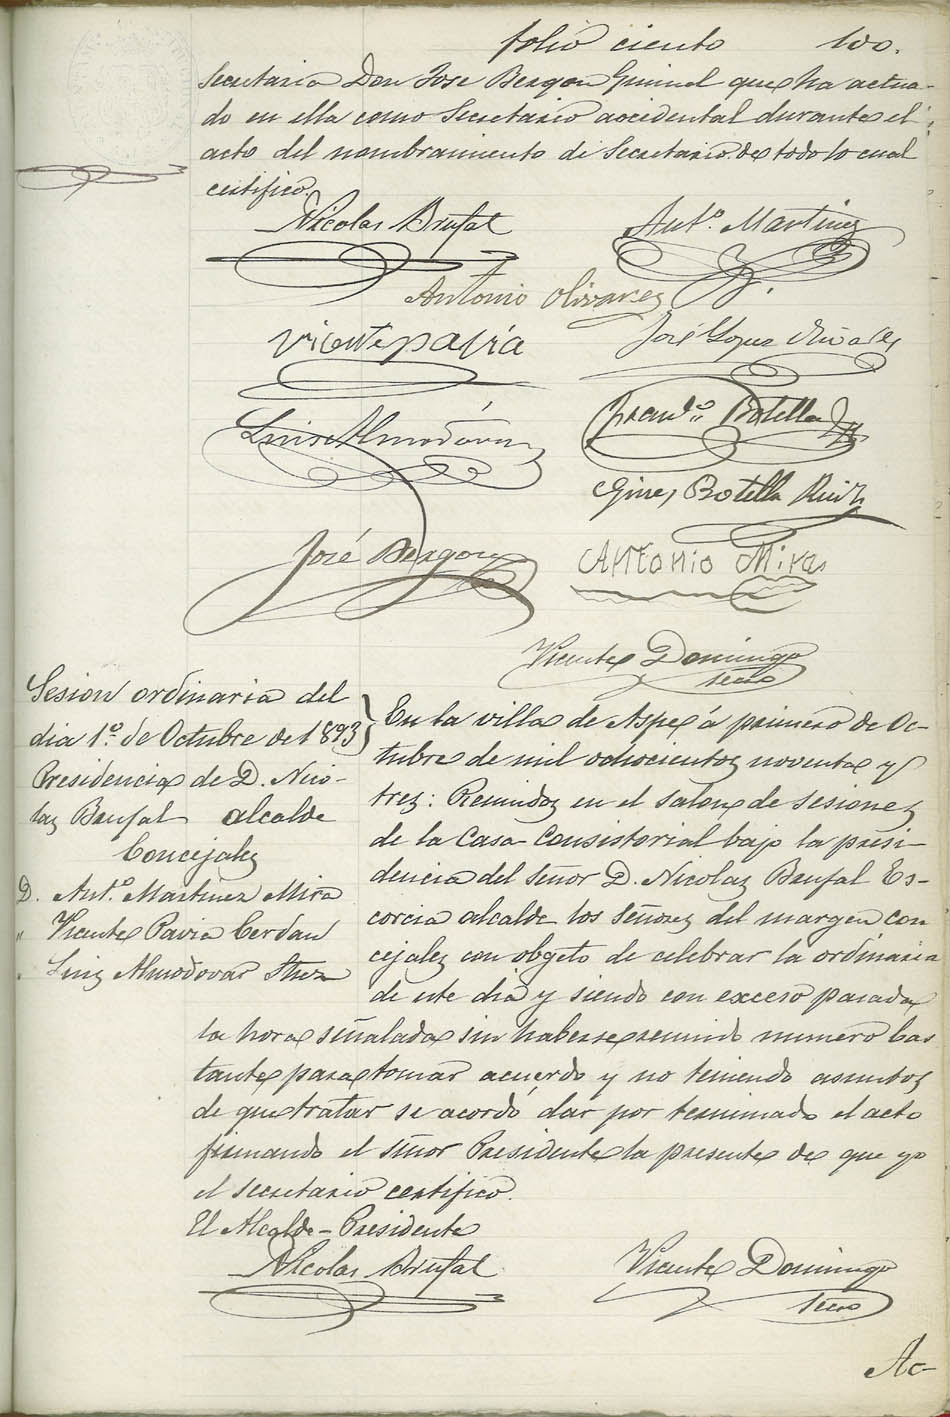 folio ciento 100.
Secretaria Don Jose Bergon Guimel que ha actua-
do en ella como Secretario accidental durante el
acto del nombramiento de Secretario. de todo lo cual
certifico.
Nicolas Brufal Ant.º Martinez
Antonio Olivares
Vicente pavia José Lopez
Luis Almodóvar Fran.co Botella
Gines Botella Ruiz
José Bergon Antonio Mira
Vicente Domingo
Secro
Sesion ordinaria del
dia 1.º de Octubre de 1893
Presidencia de D. Nico-
las Brufal alcalde
Concejales
D. Ant.º Martinez Mira
" Vicente Pavia Cerdán
" Luis Almodovar Shez
En la villa de Aspe á primero de Oc-
tubre de mil ochocientos noventa y
tres: Reunidos en el salon de sesiones
de la Casa Consistorial bajo la presi-
dencia del Señor D. Nicolas Brufal Es-
corcia alcalde los Señores del margen con
cejales con objeto de celebrar la ordinaria
de este dia y siendo con exceso pasada
la hora señalada sin haberse reunido numero bas
tante para tomar acuerdo y no teniendo asuntos
de que tratar se acordó dar por terminado el acto
firmando el señor Presidente la presente de que yo
el secretario certifico.
El Alcalde-Presidente
Nicolas Brufal Vicente Domingo
Secro
Ac-